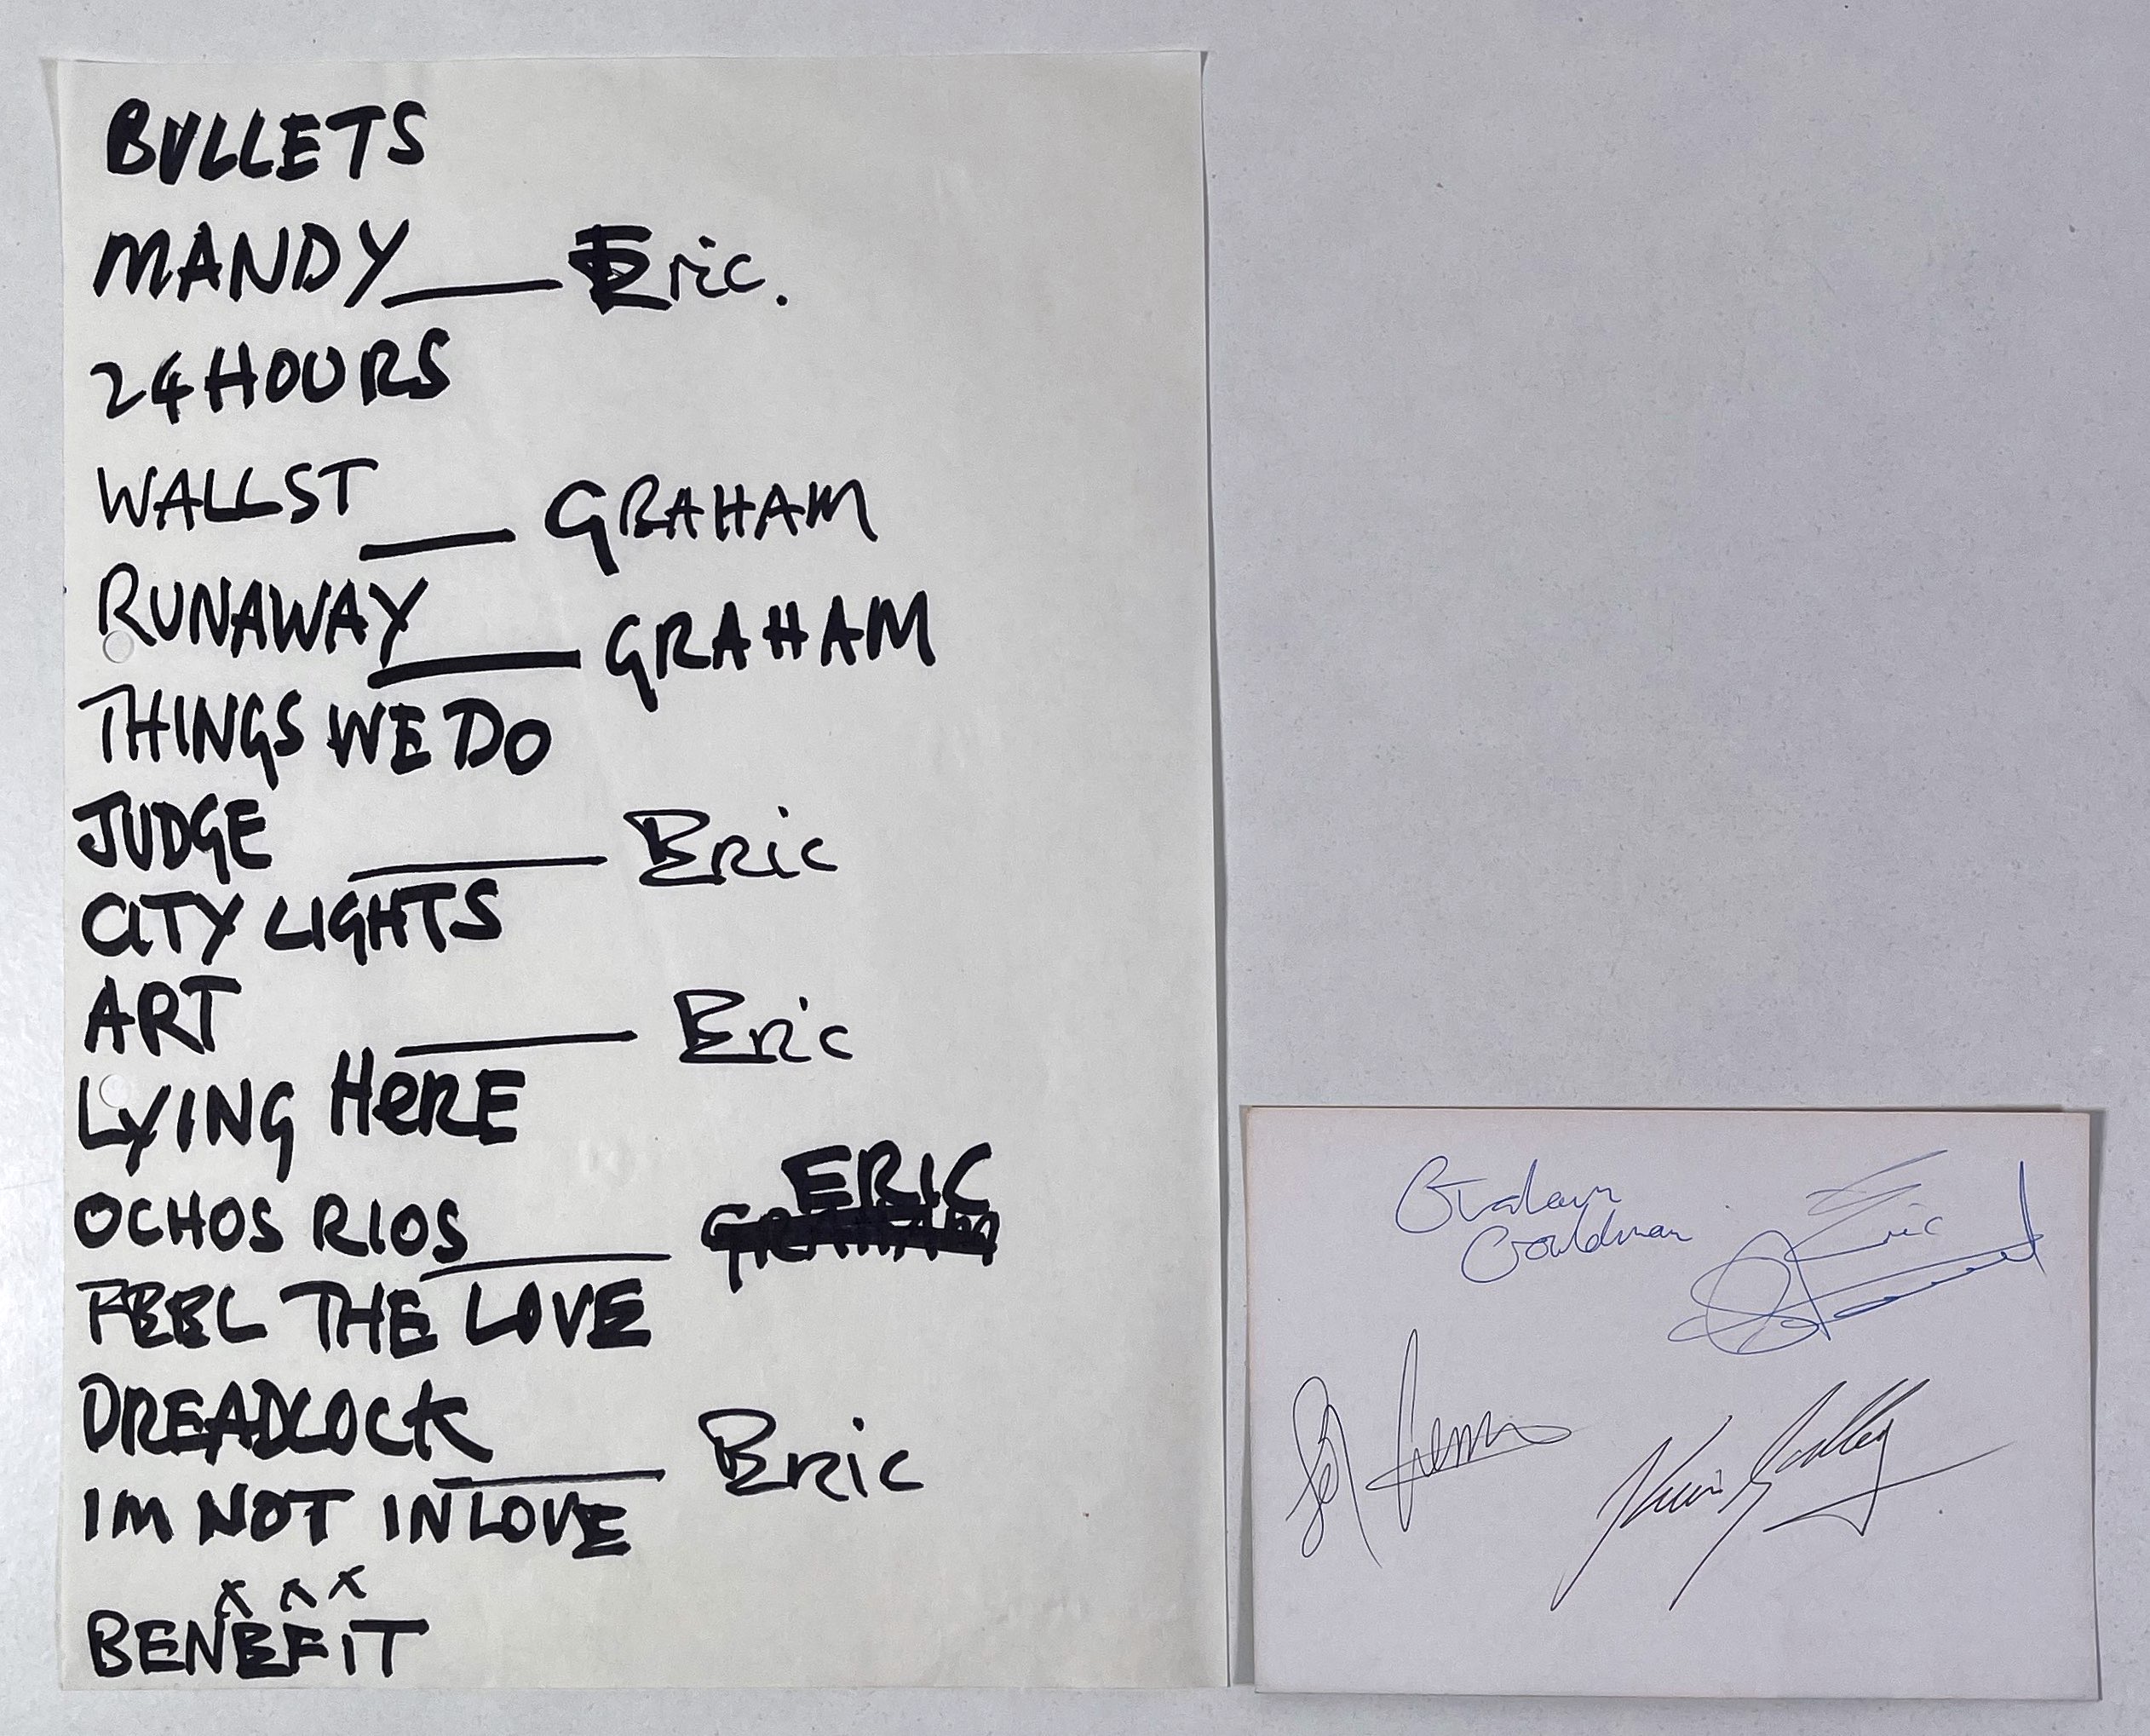 BULLETS
MANDY — Eric.
24 HOURS
WALL ST — GRAHAM
RUNAWAY — GRAHAM
THINGS WE DO
JUDGE — Eric
CITY LIGHTS
ART — Eric
LYING HeRE
ERIC
OCHOS RIOS — GRAHAM
FEEL THE LOVE
DREADLOCK — Eric
IM NOT IN LOVE
x x x
BENEFiT
Graham
Gouldman
Eric
Kevin Godley